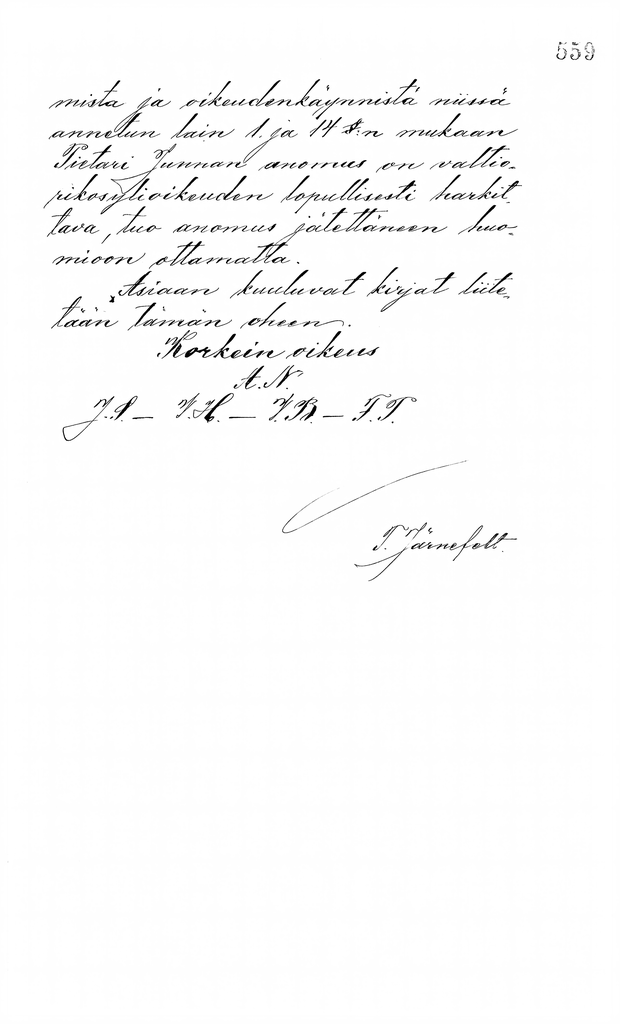 559
mista ja oikeudenkäynnistä niissä
annetun lain 1. ja 14 §:n mukaan
Pietari Junnan anomus on valtio-
rikosylioikeuden lopullisesti harkit-
tava, tuo anomus jätettäneen huo-
mioon ottamatta.
Asiaan kuuluvat kirjat liite-
tään tämän oheen.
Korkein oikeus
A.N.
J.S. — V.H. — V.B. — F.P.
T. Järnefelt.